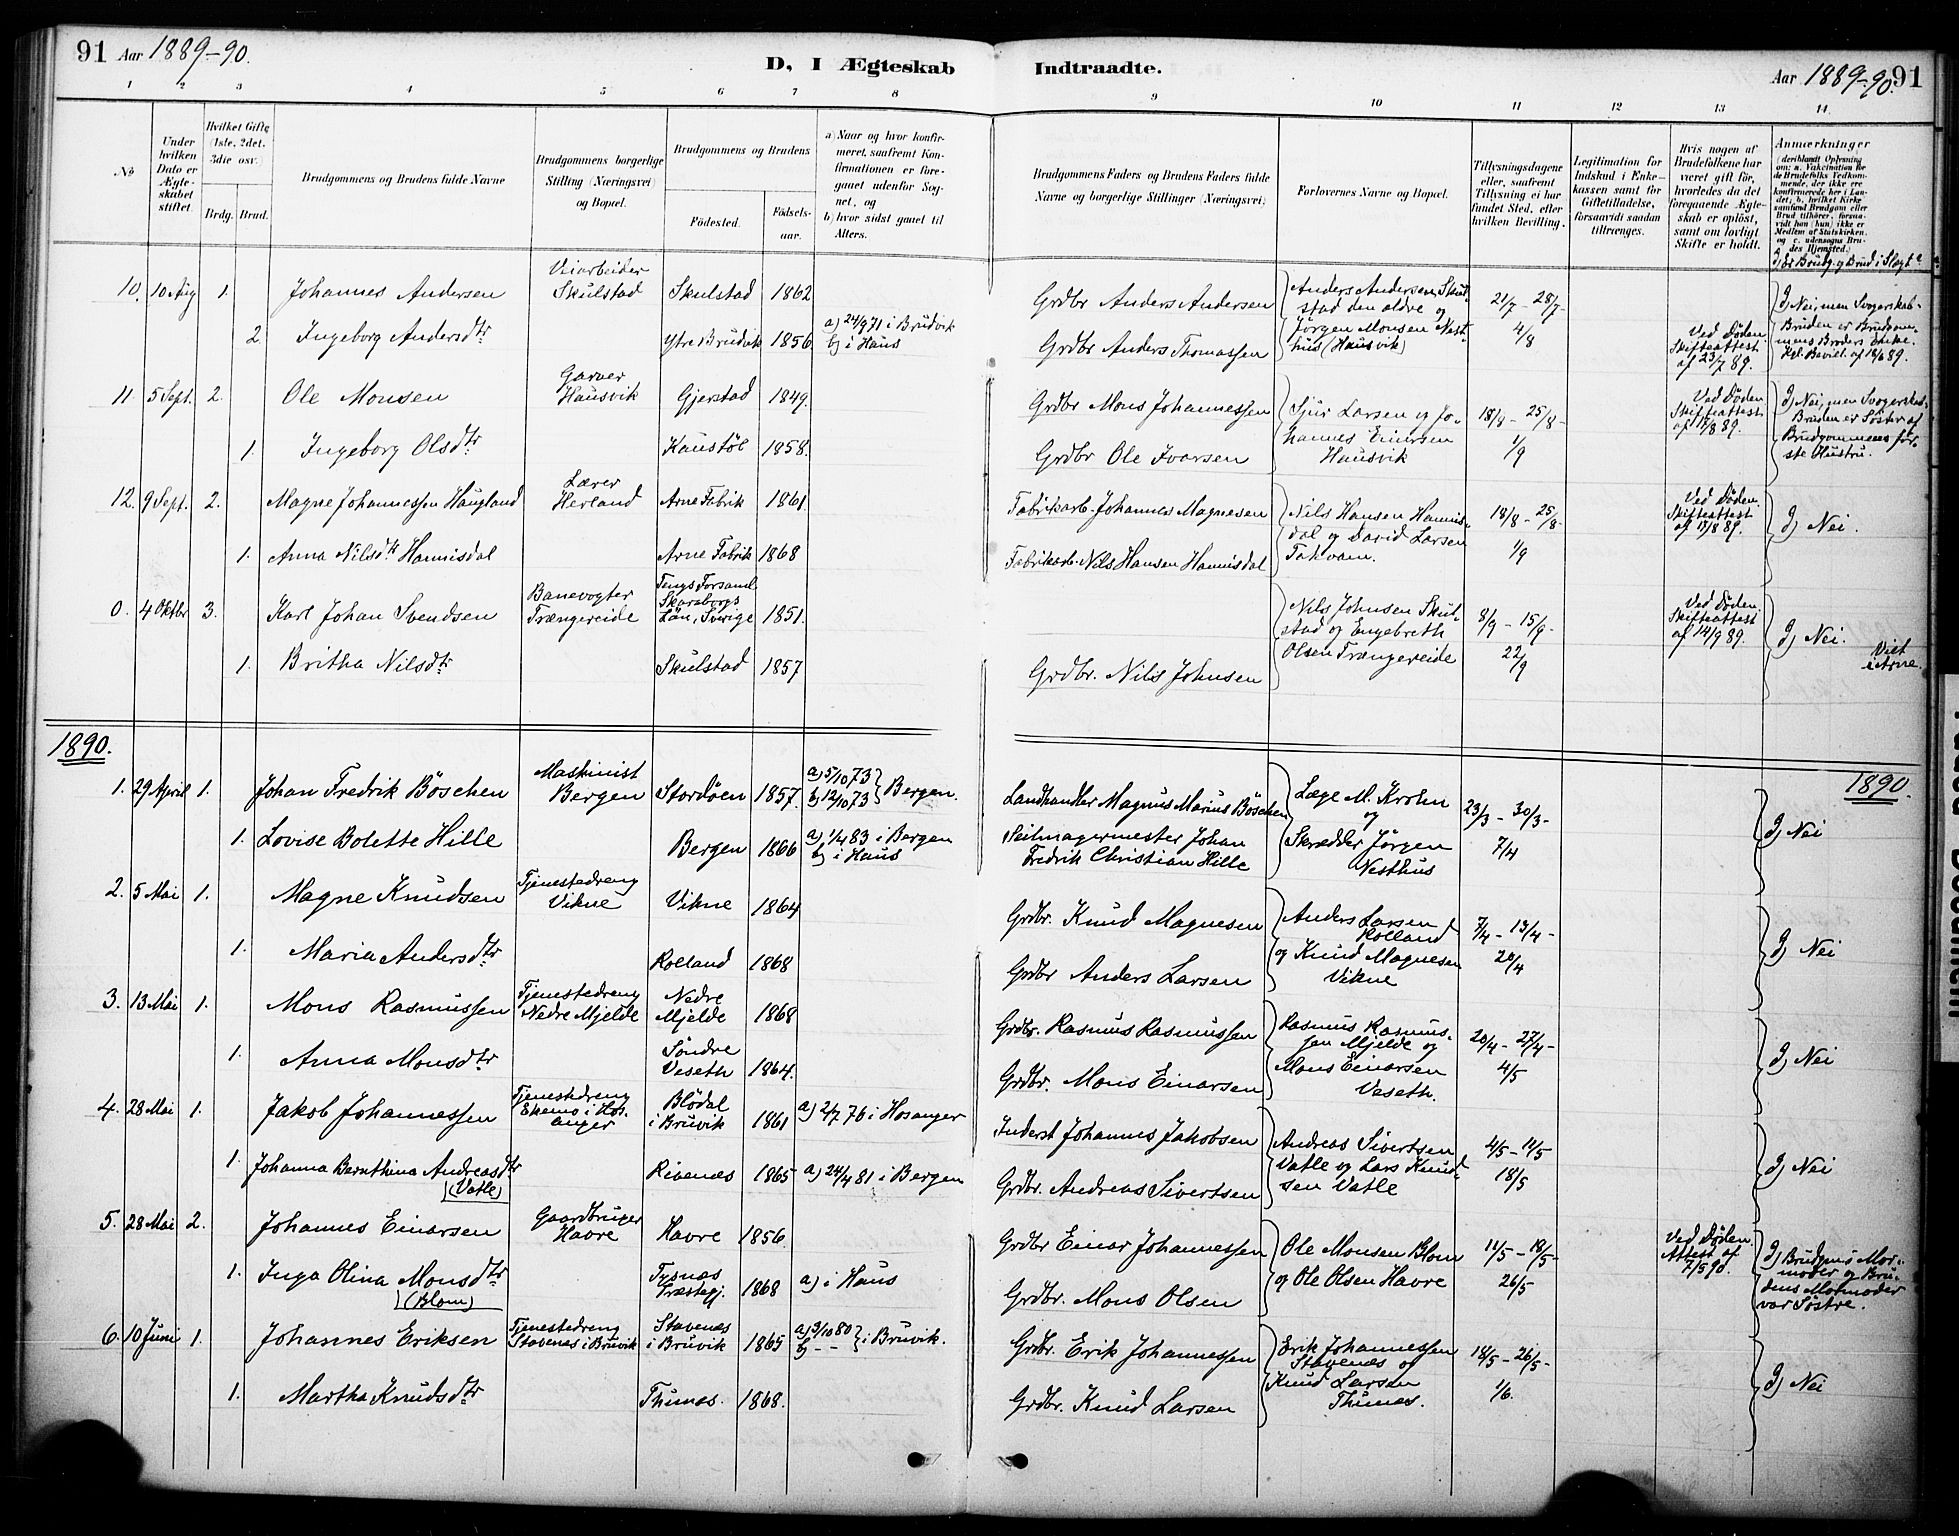 91 Aar 1889-90.
D, I Ægteskab Indtraadte.
Aar 1889-90. 91
1 2 3 4 5 6 7 8 9 10 11 12 13 14
№
Under hvilken Dato er Ægteskabet stiftet.
Hvilket Gifte (1ste, 2det, 3die osv.)
Brdg. Brud.
Brudgommens og Brudens fulde Navne
Brudgommens borgerlige Stilling (Næringsvei) og Bopæl.
Brudgommens og Brudens
Fødested.
Fødselsaar.
a) Naar og hvor konfirmeret, saafremt Konfirmationen er foregaaet udenfor Sognet, og
b) hvor sidst gaaet til Alters.
Brudgommens Faders og Brudens Faders fulde Navne og borgerlige Stillinger (Næringsvei)
Forlovernes Navne og Bopæl.
Tillysningsdagene eller, saafremt Tillysning ei har fundet Sted, efter hvilken Bevilling.
Legitimation for Indskud i Enkekassen samt for Giftetilladelse, forsaavidt saadan tiltrænges.
Hvis nogen af Brudefolkene har været gift før, hvorledes da det foregaaende Ægteskab er opløst, samt om lovligt Skifte er holdt.
Anmærkninger
(deriblandt Oplysning om: a. Vakcination for de Brudefolks Vedkommende, der ikke ere konfirmerede her i Landet; b. hvilket Kirkesamfund Brudgom eller Brud tilhører, forsaavidt han (hun) ikke er Medlem af Statskirken, og c. udensogns Brudes Hjemsted.)
d) Er Brudg. og Brud i Slægt?
10. 10 Aug 1. Johannes Andersen Veiarbeider Skulstad Skulstad 1862 Grdbr Anders Andersen Anders Andersen Skulstad den ældre og Jørgen Monsen Nesthus (Hausvik) 21/7 - 28/7 - 4/8 d) Nei, men Svogerskab - Bruden er Brudgommens Broders Enke. Kgl. Bevill. af 18/6 89.
2 Ingeborg Andersdtr Ytre Brudvik 1856 a) 24/9 71 i Brudvik b) i Haus Grdbr Anders Thomassen Ved Døden. Skifteattest af 23/7 89.
11. 5 Sept. 2. Ole Monsen Garver Hausvik Gjerstad 1849. Grdbr Mons Johannessen Sjur Larsen og Johannes Einersen Hausvik 18/8 - 25/8 - 1/9 Ved Døden Skifteattest af 17/8 89. d) Nei, men Svogerskab. Bruden er Søster af Brudgommens første Hustru.
1. Ingeborg Olsdtr Kaustøl 1858. Grdbr Ole Ivarsen
12. 9 Sept. 2. Magne Johannessen Haugland Lærer Herland Arne Fabrik 1861 Fabrikarb. Johannes Magnesen Nils Hansen Hannisdal og David Larsen Takvam. 18/8 - 25/8 - 1/9 Ved Døden. Skifteattest af 17/8 89. d) Nei.
1. Anna Nilsdtr Hannisdal Arne Fabrik 1868 Fabrikarb. Nils Hansen Hannisdal
0. 4 Oktbr 3. Karl Johan Svendsen Banevogter Trængereide Tengs Forsaml. Skaraborgs Län, Sverige 1851. Nils Johnsen Skulstad og Engebreth Olsen Trængereide 8/9 - 15/9 - 22/9 Ved Døden. Skifteattest af 14/9 89. d) Nei. Viet i Arne.
1. Britha Nilsdtr Skulstad 1857 Grdbr. Nils Johnsen
1890. 1890.
1. 29 April 1. Johan Fredrik Böschen Maskinist Bergen Stordøen 1857. a) 5/10 73 b) 12/10 73 } Bergen. Landhandler Magnus Marius Böschen Læge M. Krohn og Skrædder Jørgen Nesthus 23/3 - 30/3 - 7/4 d) Nei
1. Lovise Bolette Hille Bergen 1866 a) 1/4 83 i Bergen b) i Haus Seilmagermester Johan Fredrik Christian Hille
2. 5 Mai 1. Magne Knudsen Tjenestedreng Vikne Vikne 1864 Grdbr. Knud Magnesen Anders Larsen Rolland og Knud Magnesen Vikne 7/4 - 13/4 - 20/4 d) Nei
1. Maria Andersdtr Rolland 1868 Grdbr Anders Larsen
3. 13 Mai 1. Mons Rasmussen Tjenestedreng Nedre Mjelde Nedre Mjelde 1868 Grdbr. Rasmus Rasmussen Rasmus Rasmussen Mjelde og Mons Einarsen Veseth. 20/4 - 27/4 - 4/5 d) Nei
1. Anna Monsdtr Søndre Veseth 1864. Grdbr. Mons Einarsen
4. 28 Mai 1. Jakob Johannessen Tjenestedreng Ekemo i Hosanger Blødal i Bruvik 1861 a) 2/7 76 i Hosanger Inderst Johannes Jakobsen Andreas Sivertsen Vatle og Lars Knudsen Vatle 4/5 - 11/5 18/5 d) Nei
1. Johanna Bernthina Andreasdtr (Vatle) Rivenæs 1865 a) 24/4 81 i Bergen Grdbr. Andreas Sivertsen
5. 28 Mai 2. Johannes Einarsen Gaardbruger Havre Havre 1856. Grdbr Einar Johannessen Ole Monsen Blom og Ole Olsen Havre 11/5 - 18/5 - 26/5 Ved Døden. Attest af 7/5 90. d) Brudgms Mormoder og Brudens Mormoder var Søstre.
1. Inga Olina Monsdtr (Blom) Tysnæs Præstegj. 1868 a) i Haus Grdbr. Mons Olsen
6. 10 Juni 1. Johannes Eriksen Tjenestedreng Stavenæs i Bruvik Stavenæs i Bruvik 1865 a) 3/10 80 b) - - } i Bruvik. Grdbr. Erik Johannessen Erik Johannessen Stavenæs og Knud Larsen Thunæs. 18/5 - 26/5 - 1/6. d) Nei
1. Martha Knudsdtr Thunæs. 1868. Grdbr. Knud Larsen